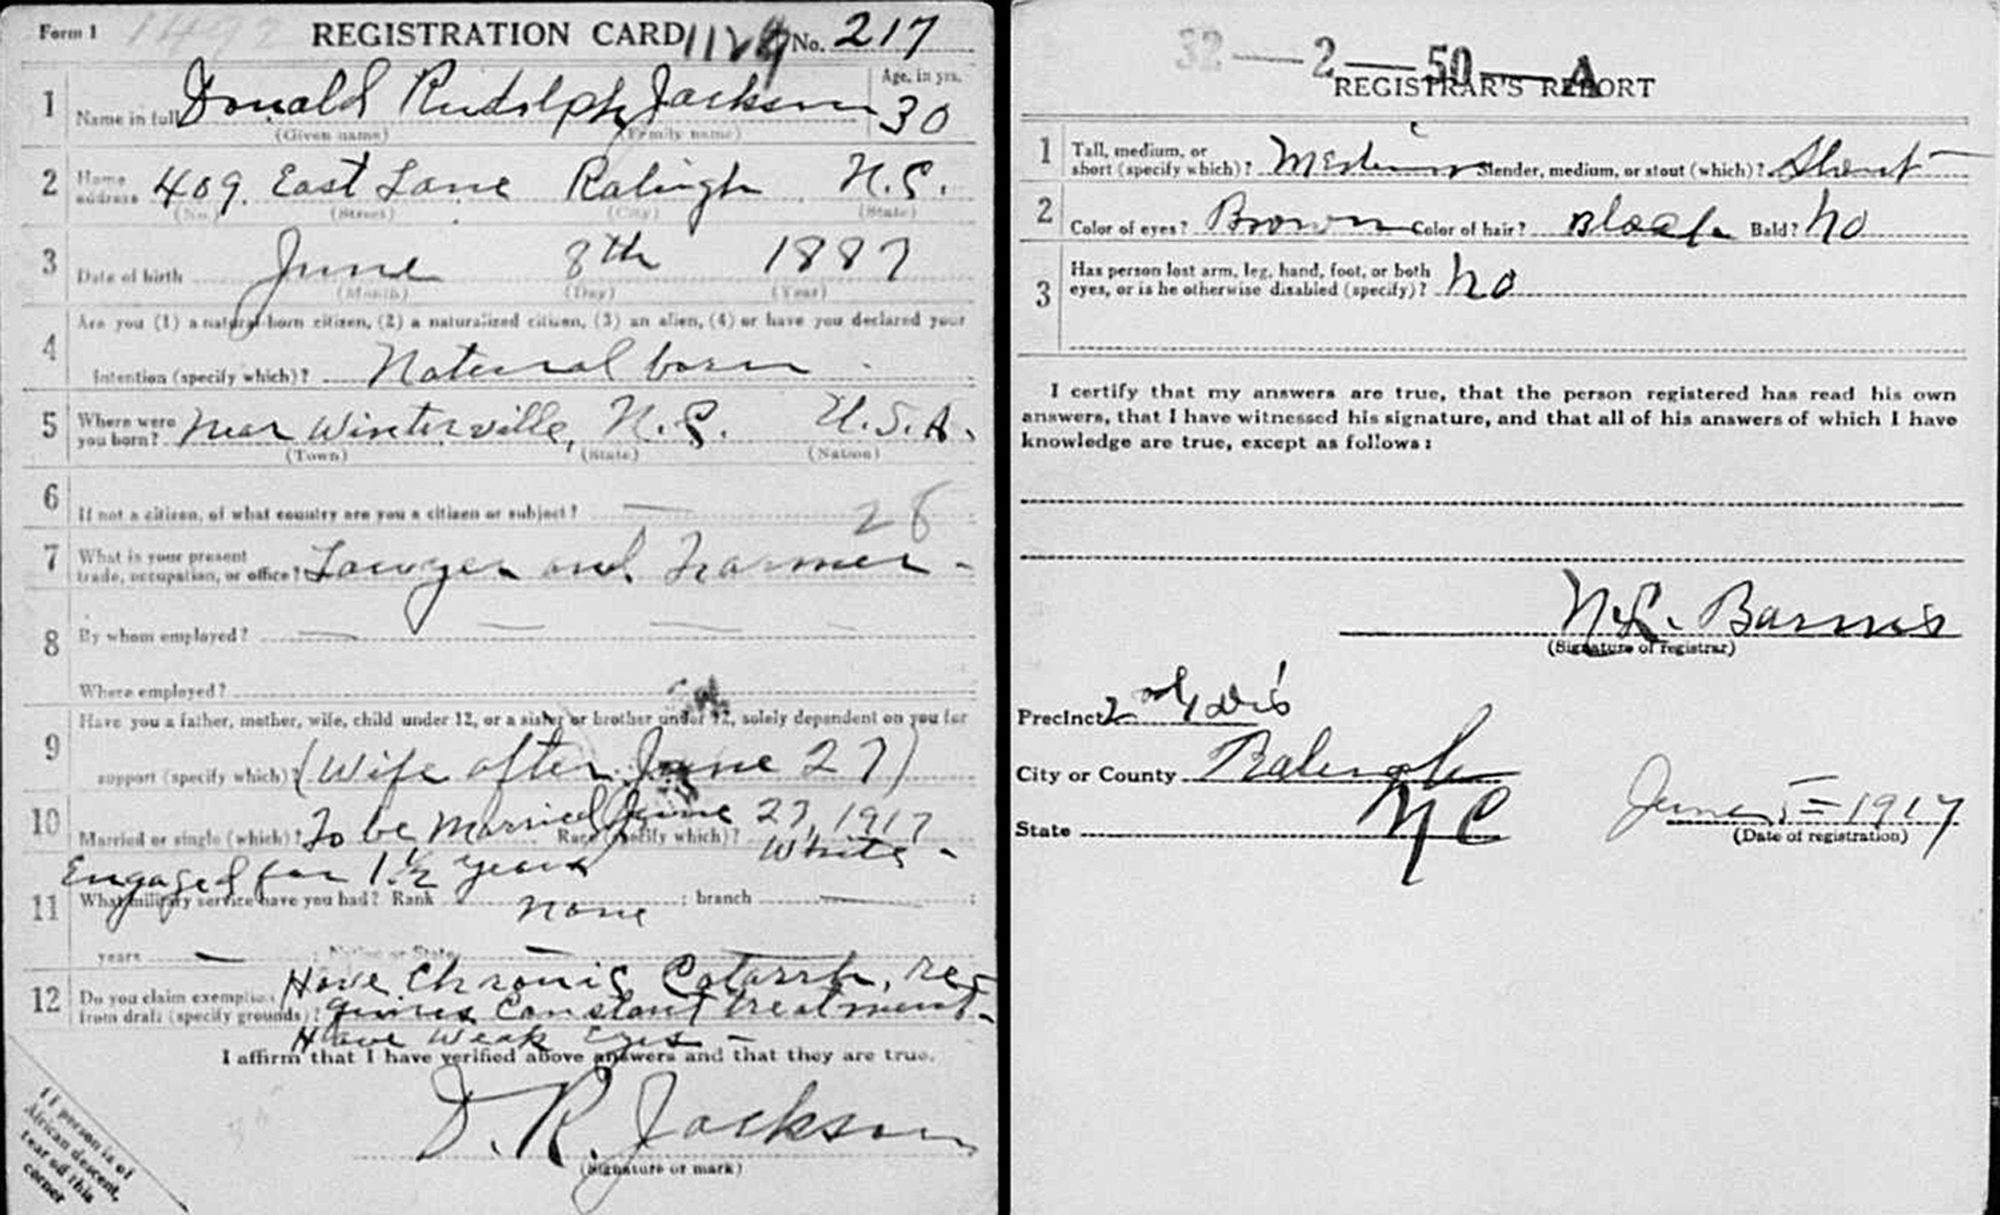 Form 1 1492 REGISTRATION CARD No. 217
1 Name in full Donald Rudolph Jackson Age, in yrs. 30
(Given name) (Family name)
2 Home address 409 East Lane Raleigh N.C.
(No.) (Street) (City) (State)
3 Date of birth June 8th 1887
(Month) (Day) (Year)
4 Are you (1) a natural-born citizen, (2) a naturalized citizen, (3) an alien, (4) or have you declared your
intention (specify which)? Natural born
5 Where were you born? Near Winterville, N.C. U.S.A.
(Town) (State) (Nation)
6 If not a citizen, of what country are you a citizen or subject? —
28
7 What is your present trade, occupation, or office? Lawyer and Farmer -
8 By whom employed? — — — —
Where employed?
9 Have you a father, mother, wife, child under 12, or a sister or brother under 12, solely dependent on you for
support (specify which)? (Wife after June 27)
10 Married or single (which)? To be Married June 27, 1917 Race (specify which)? White -
Engaged for 1 1/2 years
11 What military service have you had? Rank none ; branch — ;
years — ; Nation or State —
12 Do you claim exemption from draft (specify grounds)? Have Chronic Catarrh, re-
quires Constant treatment -
Have Weak Eyes -
I affirm that I have verified above answers and that they are true.
D. R. Jackson
(Signature or mark)
If person is of
African descent,
tear off this
corner
32 — 2 — 50 — A
REGISTRAR'S REPORT
1 Tall, medium, or short (specify which)? Medium Slender, medium, or stout (which)? Stout
2 Color of eyes? Brown Color of hair? Black Bald? No
3 Has person lost arm, leg, hand, foot, or both
eyes, or is he otherwise disabled (specify)? No
I certify that my answers are true, that the person registered has read his own
answers, that I have witnessed his signature, and that all of his answers of which I have
knowledge are true, except as follows:
N. L. Barnes
(Signature of registrar)
Precinct 2nd Dis
City or County Raleigh
State NC June 5 = 1917
(Date of registration)